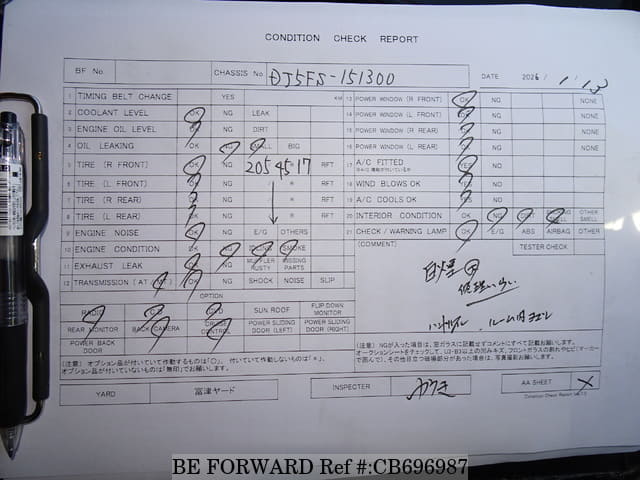 CONDITION CHECK REPORT
BF No
CHASSIS No DJ5FS-151300
DATE 2026/1/13
1 TIMING BELT CHANGE YES KM
2 COOLANT LEVEL OK NG LEAK
3 ENGINE OIL LEVEL OK NG DIRT
4 OIL LEAKING OK NG SMALL BIG
5 TIRE (R FRONT) OK NG 205 45 17 RFT
6 TIRE (L FRONT) OK NG RFT
7 TIRE (R REAR) OK NG RFT
8 TIRE (L REAR) OK NG RFT
9 ENGINE NOISE OK NG E/G OTHERS
10 ENGINE CONDITION OK NG IDLING SMOKE
11 EXHAUST LEAK OK NG MUFFLER RUSTY MISSING PARTS
12 TRANSMISSION (AT/MT) OK NG SHOCK NOISE SLIP
OPTION
RADIO CD SUN ROOF FLIP DOWN MONITOR
REAR MONITOR BACK CAMERA CRUISE CONTROL POWER SLIDING DOOR (LEFT) POWER SLIDING DOOR (RIGHT)
POWER BACK DOOR
(注意) オプション品が付いていて作動するものは「○」、付いていて作動しないものは「×」、
オプション品が付いていないものは「無印」でお願いします。
13 POWER WINDOW (R FRONT) OK NG NONE
14 POWER WINDOW (L FRONT) OK NG NONE
15 POWER WINDOW (R REAR) OK NG NONE
16 POWER WINDOW (L REAR) OK NG NONE
17 A/C FITTED YES NO
18 WIND BLOWS OK YES NO
19 A/C COOLS OK YES NO
20 INTERIOR CONDITION OK NG DIRT SMELL OTHER SMELL
21 CHECK/WARNING LAMP OK E/G ABS AIRBAG OTHER
(COMMENT) TESTER CHECK
白煙 大
ハンドル、ルーム内ヨゴレ
(注意) NGが入った項目は、空ガラスに記載せずコメントにすべて記載お願いします。
YARD 富津ヤード
INSPECTER
AA SHEET ×
BE FORWARD Ref #:CB696987